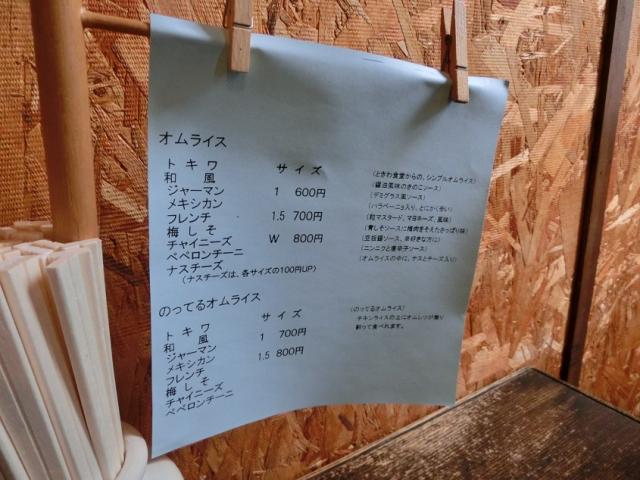 オムライス
トキワ サイズ (ときわ食堂からの、シンプルオムライス)
和風 (醤油風味のきのこソース)
ジャーマン 1 600円 (デミグラス風ソース)
メキシカン (ハラペーニョ入り、とにかく辛い)
フレンチ 1.5 700円 (粒マスタード、マヨネーズ、風味)
梅しそ (青しそソースに梅肉をそえたさっぱり味)
チャイニーズ W 800円 (豆板醤ソース、辛好きな方に)
ペペロンチーニ (ニンニクと唐辛子ソース)
ナスチーズ (オムライスの中に、ナスとチーズ入り)
(ナスチーズは、各サイズの100円UP)
のってるオムライス
トキワ サイズ (のってるオムライス)
和風 チキンライスの上にオムレツが乗り
ジャーマン 1 700円 割って食べれます。
メキシカン 1.5 800円
フレンチ
梅しそ
チャイニーズ
ペペロンチーニ